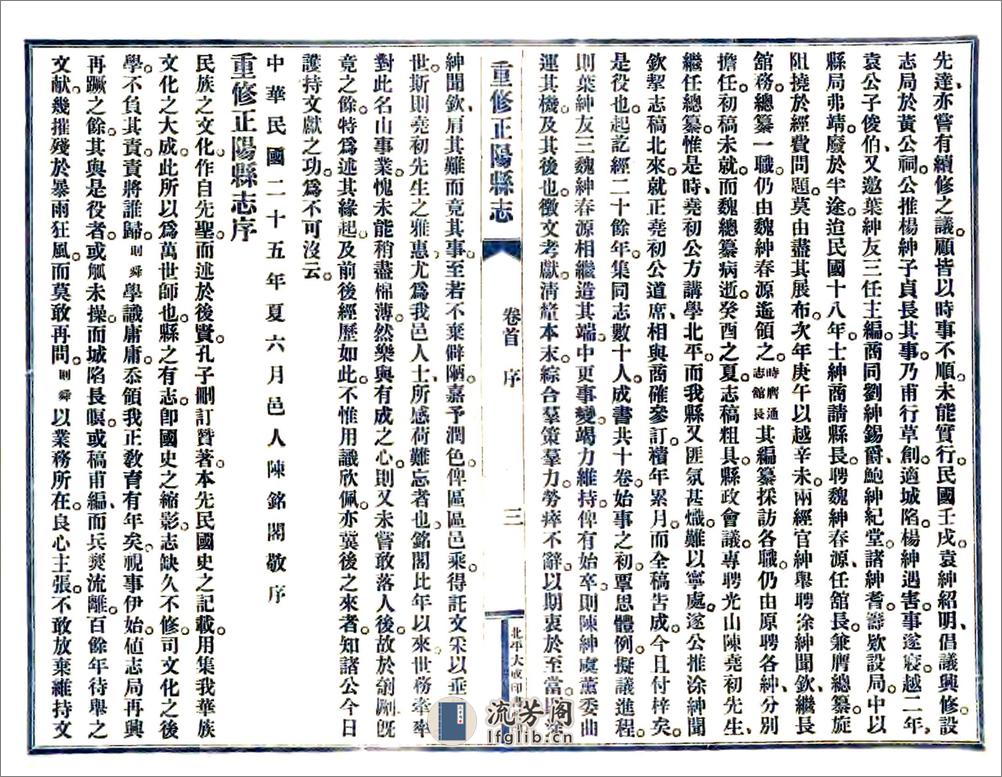 先達、亦嘗有續修之議。顧皆以時事不順、未能實行。民國壬戌、袁紳紹明、倡議興修、設
志局於黃公祠。公推楊紳子貞長其事。乃甫行草創、適城陷、楊紳遇害、事遂寢。越二年、
袁公子俊、伯又邀葉紳友三任主編、商同劉紳錫爵、鮑紳紀堂、諸紳耆、籌欵設局。中以
縣局弗靖、廢於半途。迨民國十八年、士紳商請縣長、聘魏紳春源、任舘長、兼膺總纂。旋
阻撓於經費問題。莫由盡其展布。次年庚午、以越辛未、兩經官紳舉聘徐紳聞欽、繼長
舘務、總纂一職、仍由魏紳春源遙領之。時膺通志舘長其編纂採訪各職、仍由原聘各紳、分別
擔任。初稿未就、而魏總纂病逝。癸酉之夏、志稿粗具、縣政會議、專聘光山陳堯初先生、
繼任總纂。惟是時、堯初公方講學北平、而我縣又匪氛甚熾、難以寧處。遂公推涂紳聞
欽、挈志稿北來、就正堯初公道席、相與商確參訂、積年累月、而全稿吿成。今日付梓矣。
是役也、起訖經二十餘年、集同志數十人、成書共十卷。始事之初、覃思體例、擬議進程、
則葉紳友三、魏紳春源、相繼造其端。中更事變、竭力維持、俾有始卒、則陳紳虞薰、委曲
運其機。及其後也、徵文考獻、清釐本末、綜合羣策羣力、勞瘁不辭、以期衷於至當、則涂
重修正陽縣志
卷首 序
三
北平大成印書
紳聞欽、肩其難而竟其事。至若不棄僻陋、嘉予潤色、俾區區邑乘、得託文采以垂
世、斯則堯初先生之雅惠、尤為我邑人士、所感荷難忘者也。銘閣比年以來、世務牽率
對此名山事業、愧未能稍盡棉薄。然樂與有成之心、則又未嘗敢落人後。故於剞劂旣
竟之餘、特為述其緣起、及前後經歷如此。不惟用識欣佩、亦冀後之來者、知諸公今日
護持文獻之功、為不可沒云。
中華民國二十五年夏六月邑人陳銘閣敬序
重修正陽縣志序
民族之文化、作自先聖、而述於後賢。孔子刪訂贊著、本先民國史之記載、用集我華族
文化之大成、此所以為萬世師也。縣之有志、卽國史之縮影、志缺久不修、司文化之後
學、不負其責、責將誰歸。則舜學識庸庸、忝領我正教育有年矣。視事伊始、値志局再興
再蹶之餘。其與是役者、或觚未操而城陷長暝、或稿甫編、而兵燹流離。百餘年待舉之
文献、幾摧殘於暴雨狂風、而莫敢再問。則舜以業務所在、良心主張、不敢放棄維持文
流芳阁
lfglib.cn